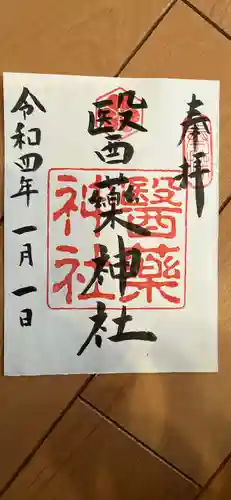 奉拝
醫薬神社
醫薬
神社
令和四年一月一日